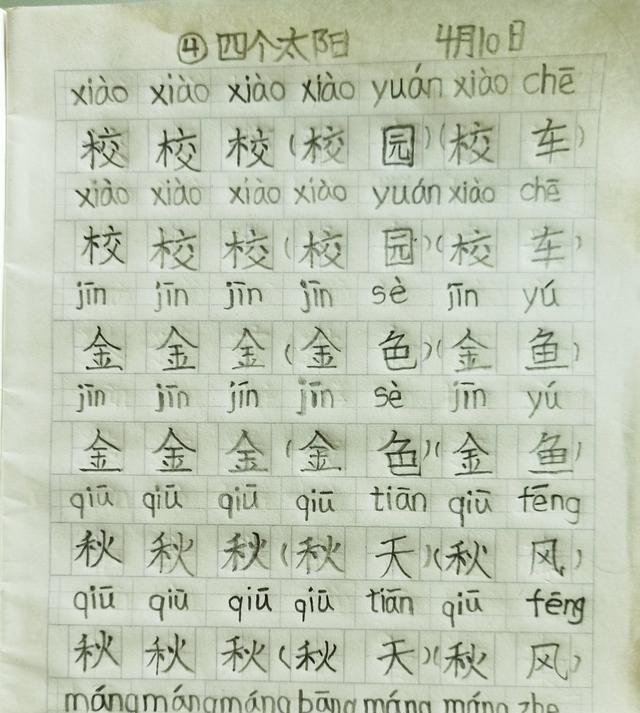 ④ 四个太阳 4月10日
xiào xiào xiào xiào yuán xiào chē
校 校 校 (校 园)(校 车)
xiào xiào xiào xiào yuán xiào chē
校 校 校 (校 园)(校 车)
jīn jīn jīn jīn sè jīn yú
金 金 金 (金 色)(金 鱼)
jīn jīn jīn jīn sè jīn yú
金 金 金 (金 色)(金 鱼)
qiū qiū qiū qiū tiān qiū fēng
秋 秋 秋 (秋 天)(秋 风)
qiū qiū qiū qiū tiān qiū fēng
秋 秋 秋 (秋 天)(秋 风)
máng máng máng bāng máng máng zhe